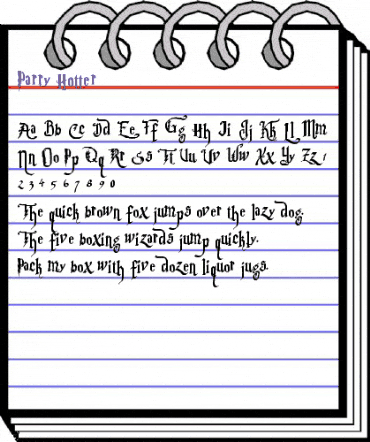 Parry Hotter
Aa Bb Cc Dd Ee Ff Gg Hh Ii Jj Kk Ll Mm
Nn Oo Pp Qq Rr Ss Tt Uu Vv Ww Xx Yy Zz 1
2 3 4 5 6 7 8 9 0
The quick brown fox jumps over the lazy dog.
The five boxing wizards jump quickly.
Pack my box with five dozen liquor jugs.